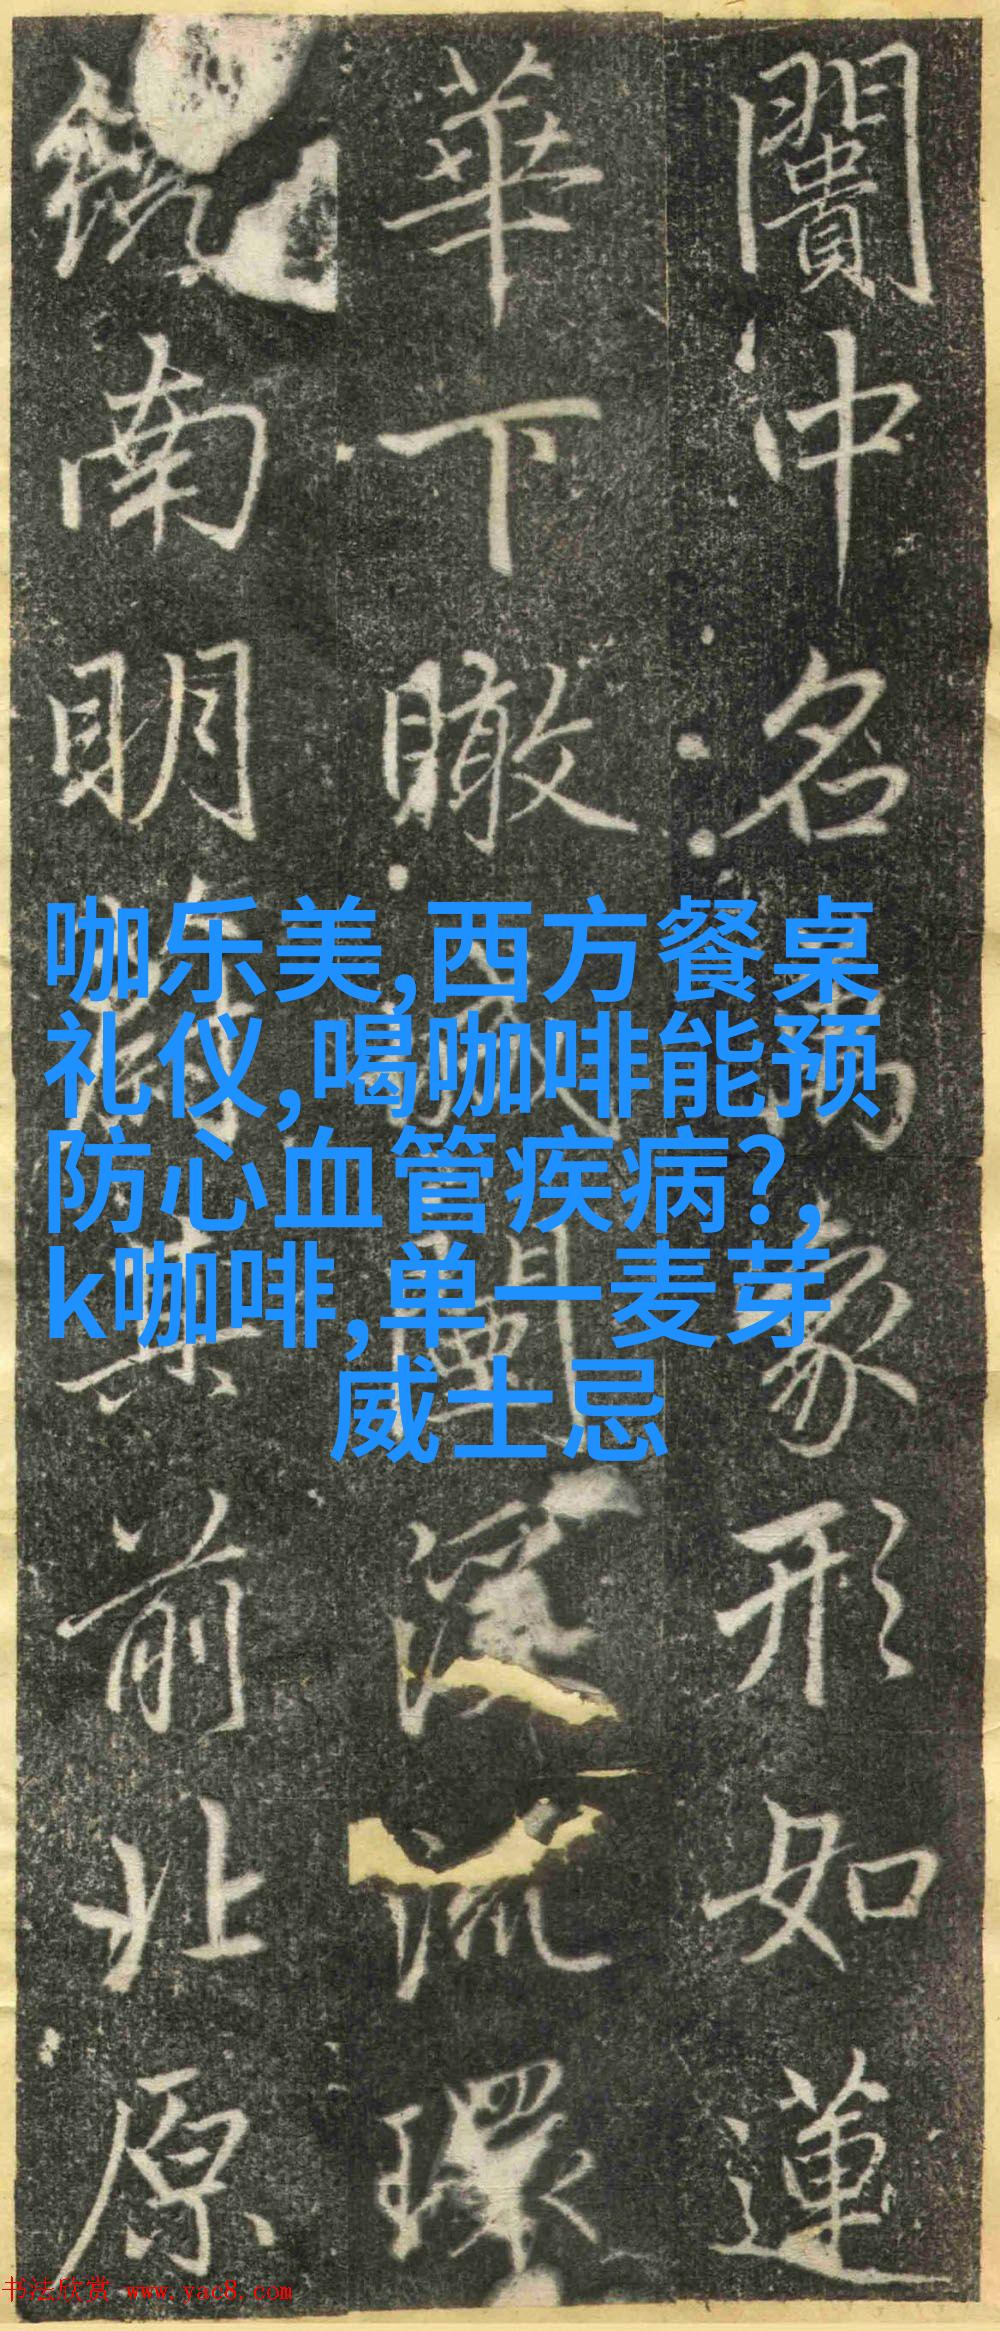 咖乐美,西方餐桌
礼仪,喝咖啡能预
防心血管疾病?,
k咖啡,单一麦芽
威士忌
闠中名象形如蓮
華下瞰闉深流環
南明其前北原
书法欣赏 www.yac8.com